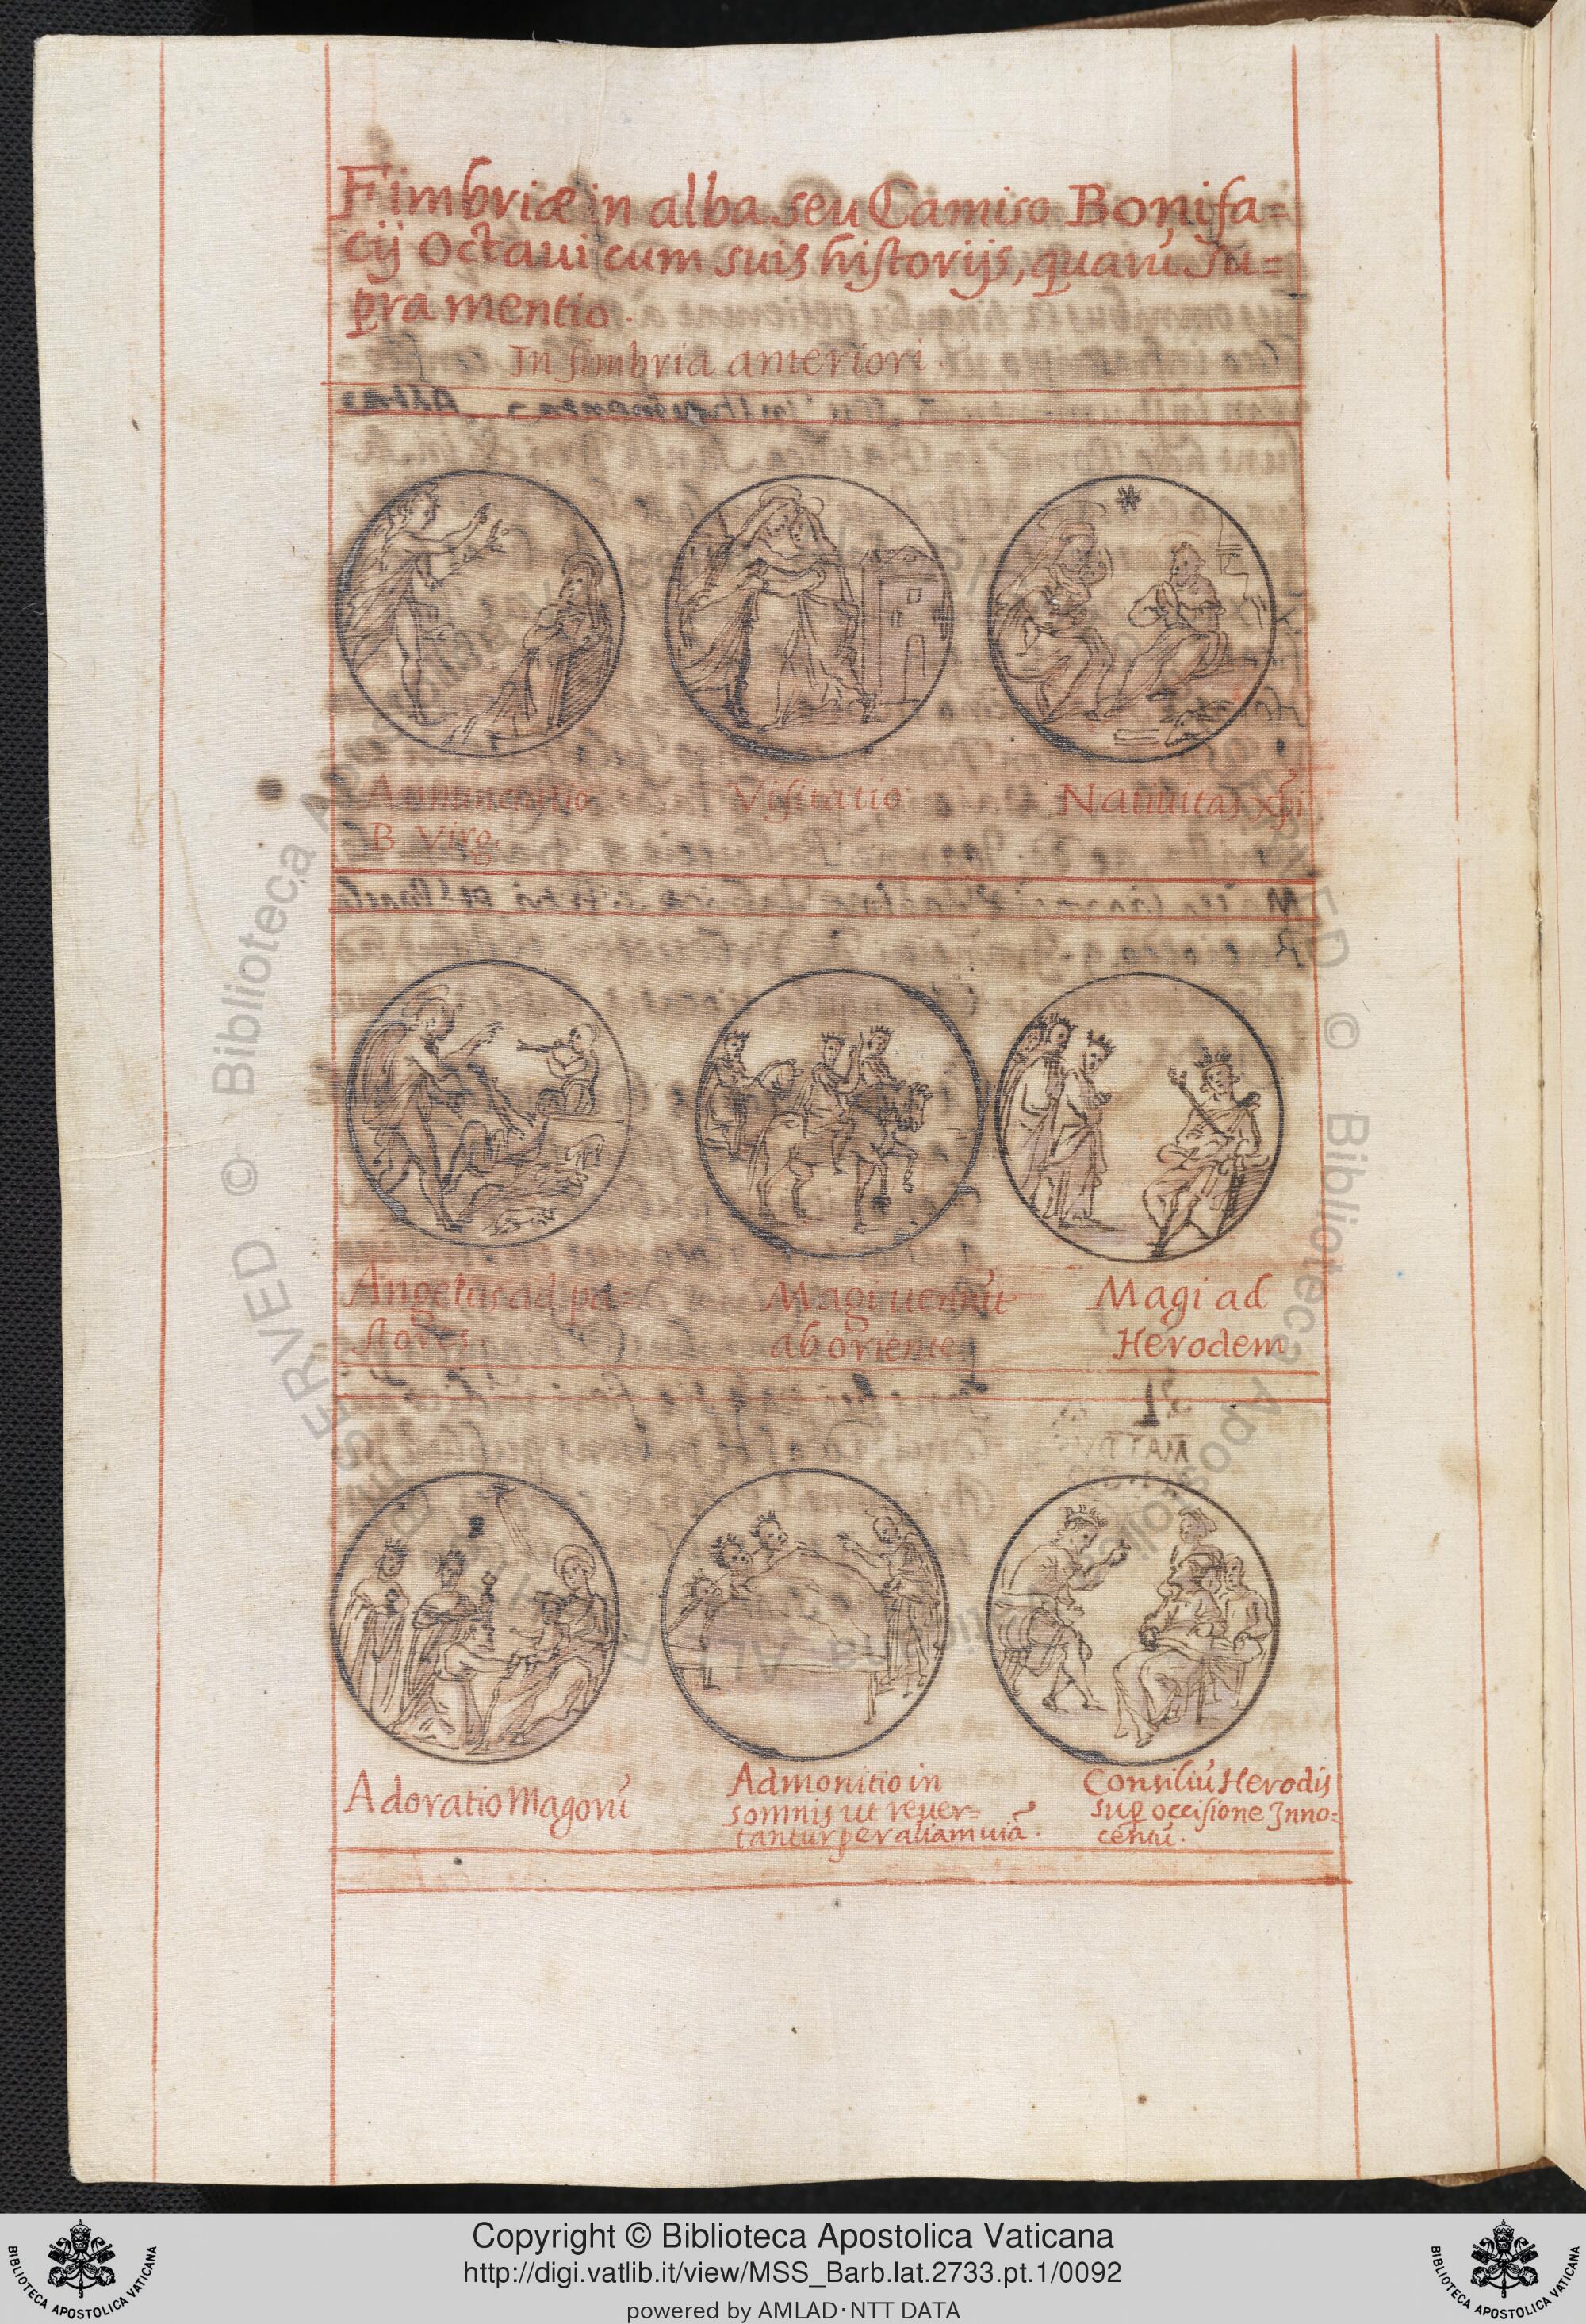 Fimbriæ in alba seu Camiso Bonifa=
cij Octaui cum suis historijs, quarũ su=
pra mentio.
In fimbria anteriori.
Annuntiatio
B. Virg.
Visitatio
Natiuitas Xp̃i
Angelus ad pa=
stores
Magi uenerũt
ab oriente
Magi ad
Herodem
Adoratio Magorũ
Admonitio in
somnis ut reuer=
tantur per aliam uiã.
Consiliũ Herodis
sup̱ occisione Inno=
centũ.
© Biblioteca Apostolica Vaticana
Copyright © Biblioteca Apostolica Vaticana
http://digi.vatlib.it/view/MSS_Barb.lat.2733.pt.1/0092
powered by AMLAD·NTT DATA
BIBLIOTECA APOSTOLICA VATICANA
BIBLIOTECA APOSTOLICA VATICANA